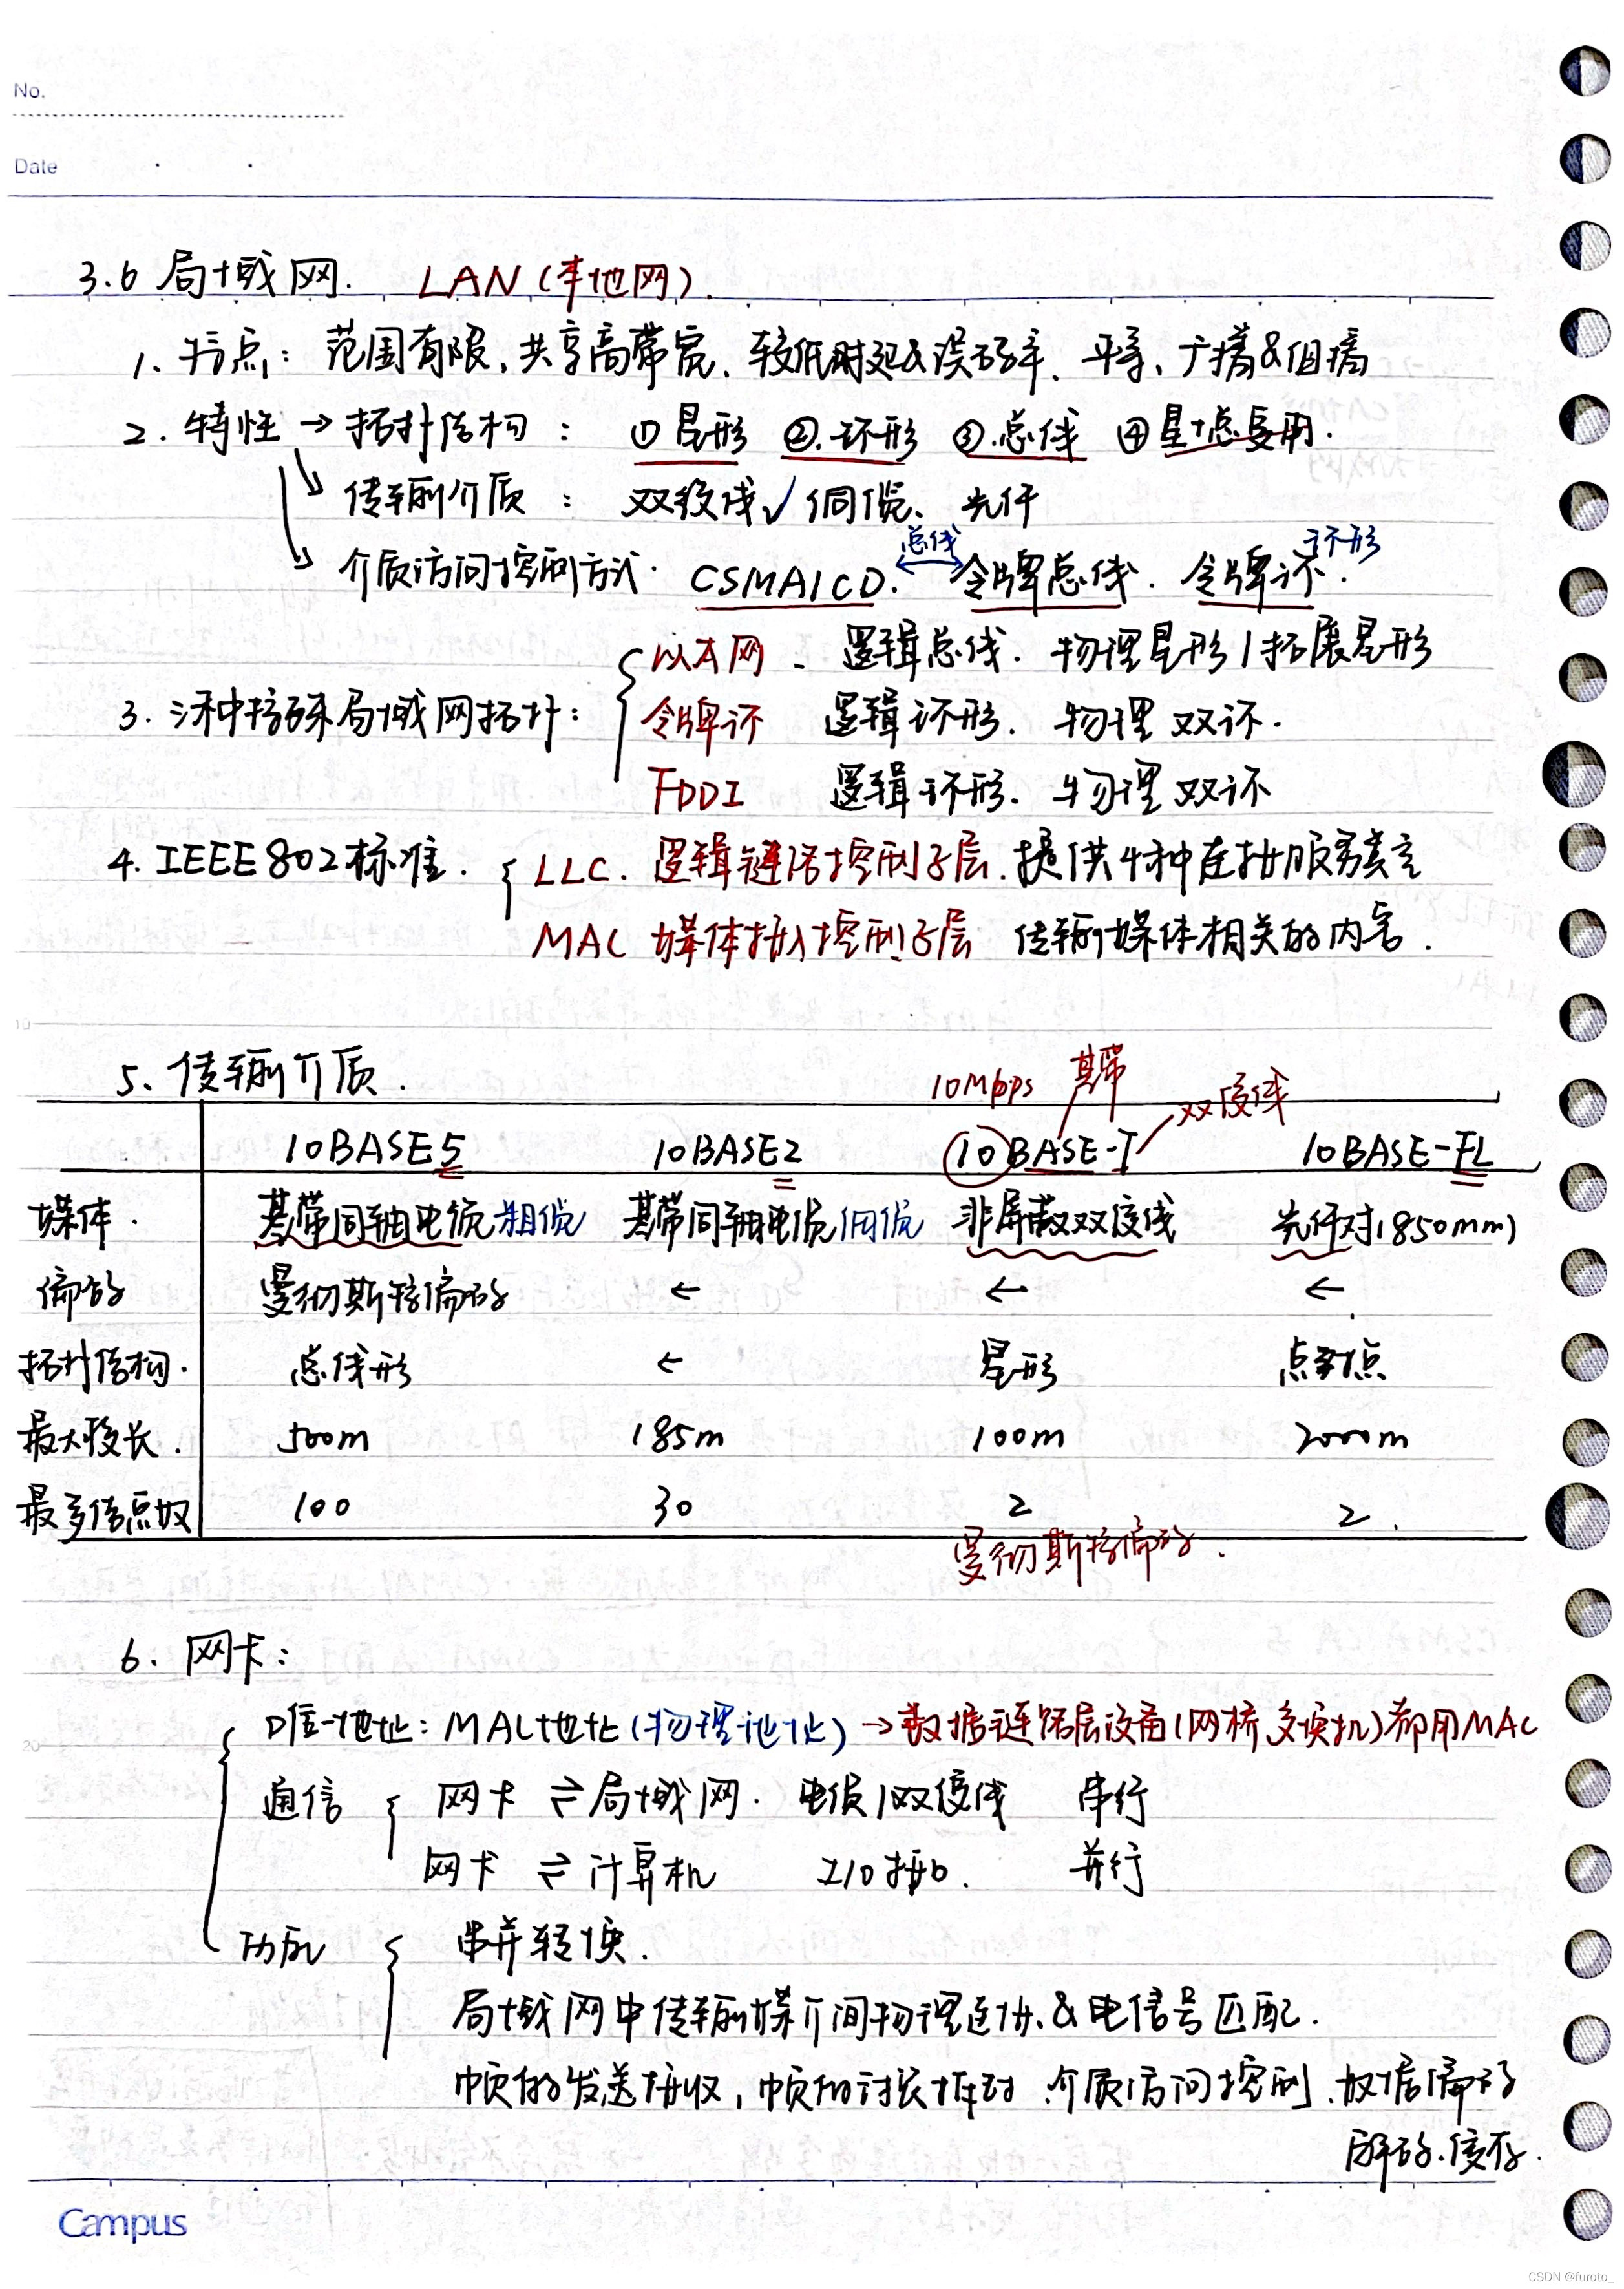 No.
Date
3.6 局域网. LAN (本地网).
1. 特点: 范围有限, 共享高带宽、较低时延&误码率、平等、广播&组播
2. 特性 → 拓扑结构: ①星形 ②.环形 ③.总线 ④星+总复用.
传输介质: 双绞线✓ 铜缆、光纤
总线 环形
介质访问控制方式. CSMA/CD. 令牌总线. 令牌环.
以太网、逻辑总线. 物理星形/拓展星形
3. 三种特殊局域网拓扑:
令牌环 逻辑环形. 物理双环.
FDDI 逻辑环形. 物理双环
4. IEEE802标准. LLC. 逻辑链路控制子层. 提供4种连接服务类言
MAC 媒体接入控制子层 传输媒体相关的内容.
5、传输介质.
10Mbps 基带 双绞线
10BASE5 10BASE2 10BASE-T 10BASE-FL
媒体. 基带同轴电缆 粗缆 基带同轴电缆 细缆 非屏蔽双绞线 光纤对(850mm)
编码 曼彻斯特编码 ← ← ←
拓扑结构. 总线形 ← 星形 点到点
最大段长. 500m 185m 100m 2000m
最多结点数 100 30 2 2.
曼彻斯特编码.
6. 网卡:
唯一地址: MAC地址 (物理地址) → 数据链路层设备(网桥、交换机)都用MAC
通信 网卡 ⇌ 局域网. 电缆/双绞线 串行
网卡 ⇌ 计算机 I/O接口. 并行
功能 串并转换.
局域网中传输媒介间物理连接 & 电信号匹配.
帧的发送接收, 帧的封装拆封 介质访问控制、数据编码
解码、缓存.
Campus
CSDN @furoto_